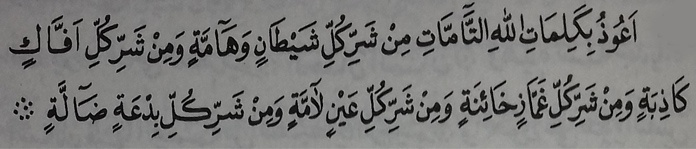 اَعُوْذُ بِكَلِمَاتِ اللهِ التَّآمَّاتِ مِنْ شَرِّ كُلِّ شَيْطَانٍ وَهَآمَّةٍ وَمِنْ شَرِّ كُلِّ اَفَّاكٍ
كَاذِبَةٍ وَمِنْ شَرِّ كُلِّ غَمَّازٍ خَائِنَةٍ وَمِنْ شَرِّ كُلِّ عَيْنٍ لَآمَّةٍ وَمِنْ شَرِّ كُلِّ بِدْعَةٍ ضَآلَّةٍ ჻